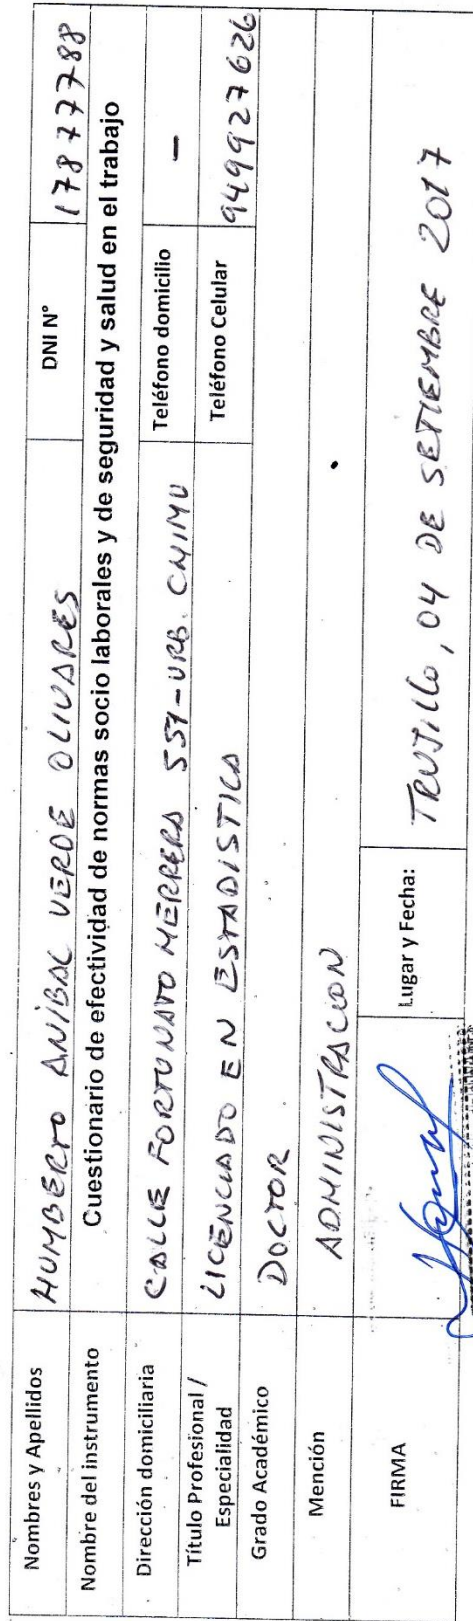 Nombres y Apellidos HUMBERTO ANIBAL VERDE OLIVARES DNI N° 178777788
Nombre del instrumento Cuestionario de efectividad de normas socio laborales y de seguridad y salud en el trabajo
Dirección domiciliaria CALLE FORTUNATO HERRERA 557-URB. CHIMU Teléfono domicilio —
Título Profesional / Especialidad LICENCIADO EN ESTADISTICA Teléfono Celular 949927626
Grado Académico DOCTOR
Mención ADMINISTRACION
FIRMA Lugar y Fecha: TRUJILLO, 04 DE SETIEMBRE 2017